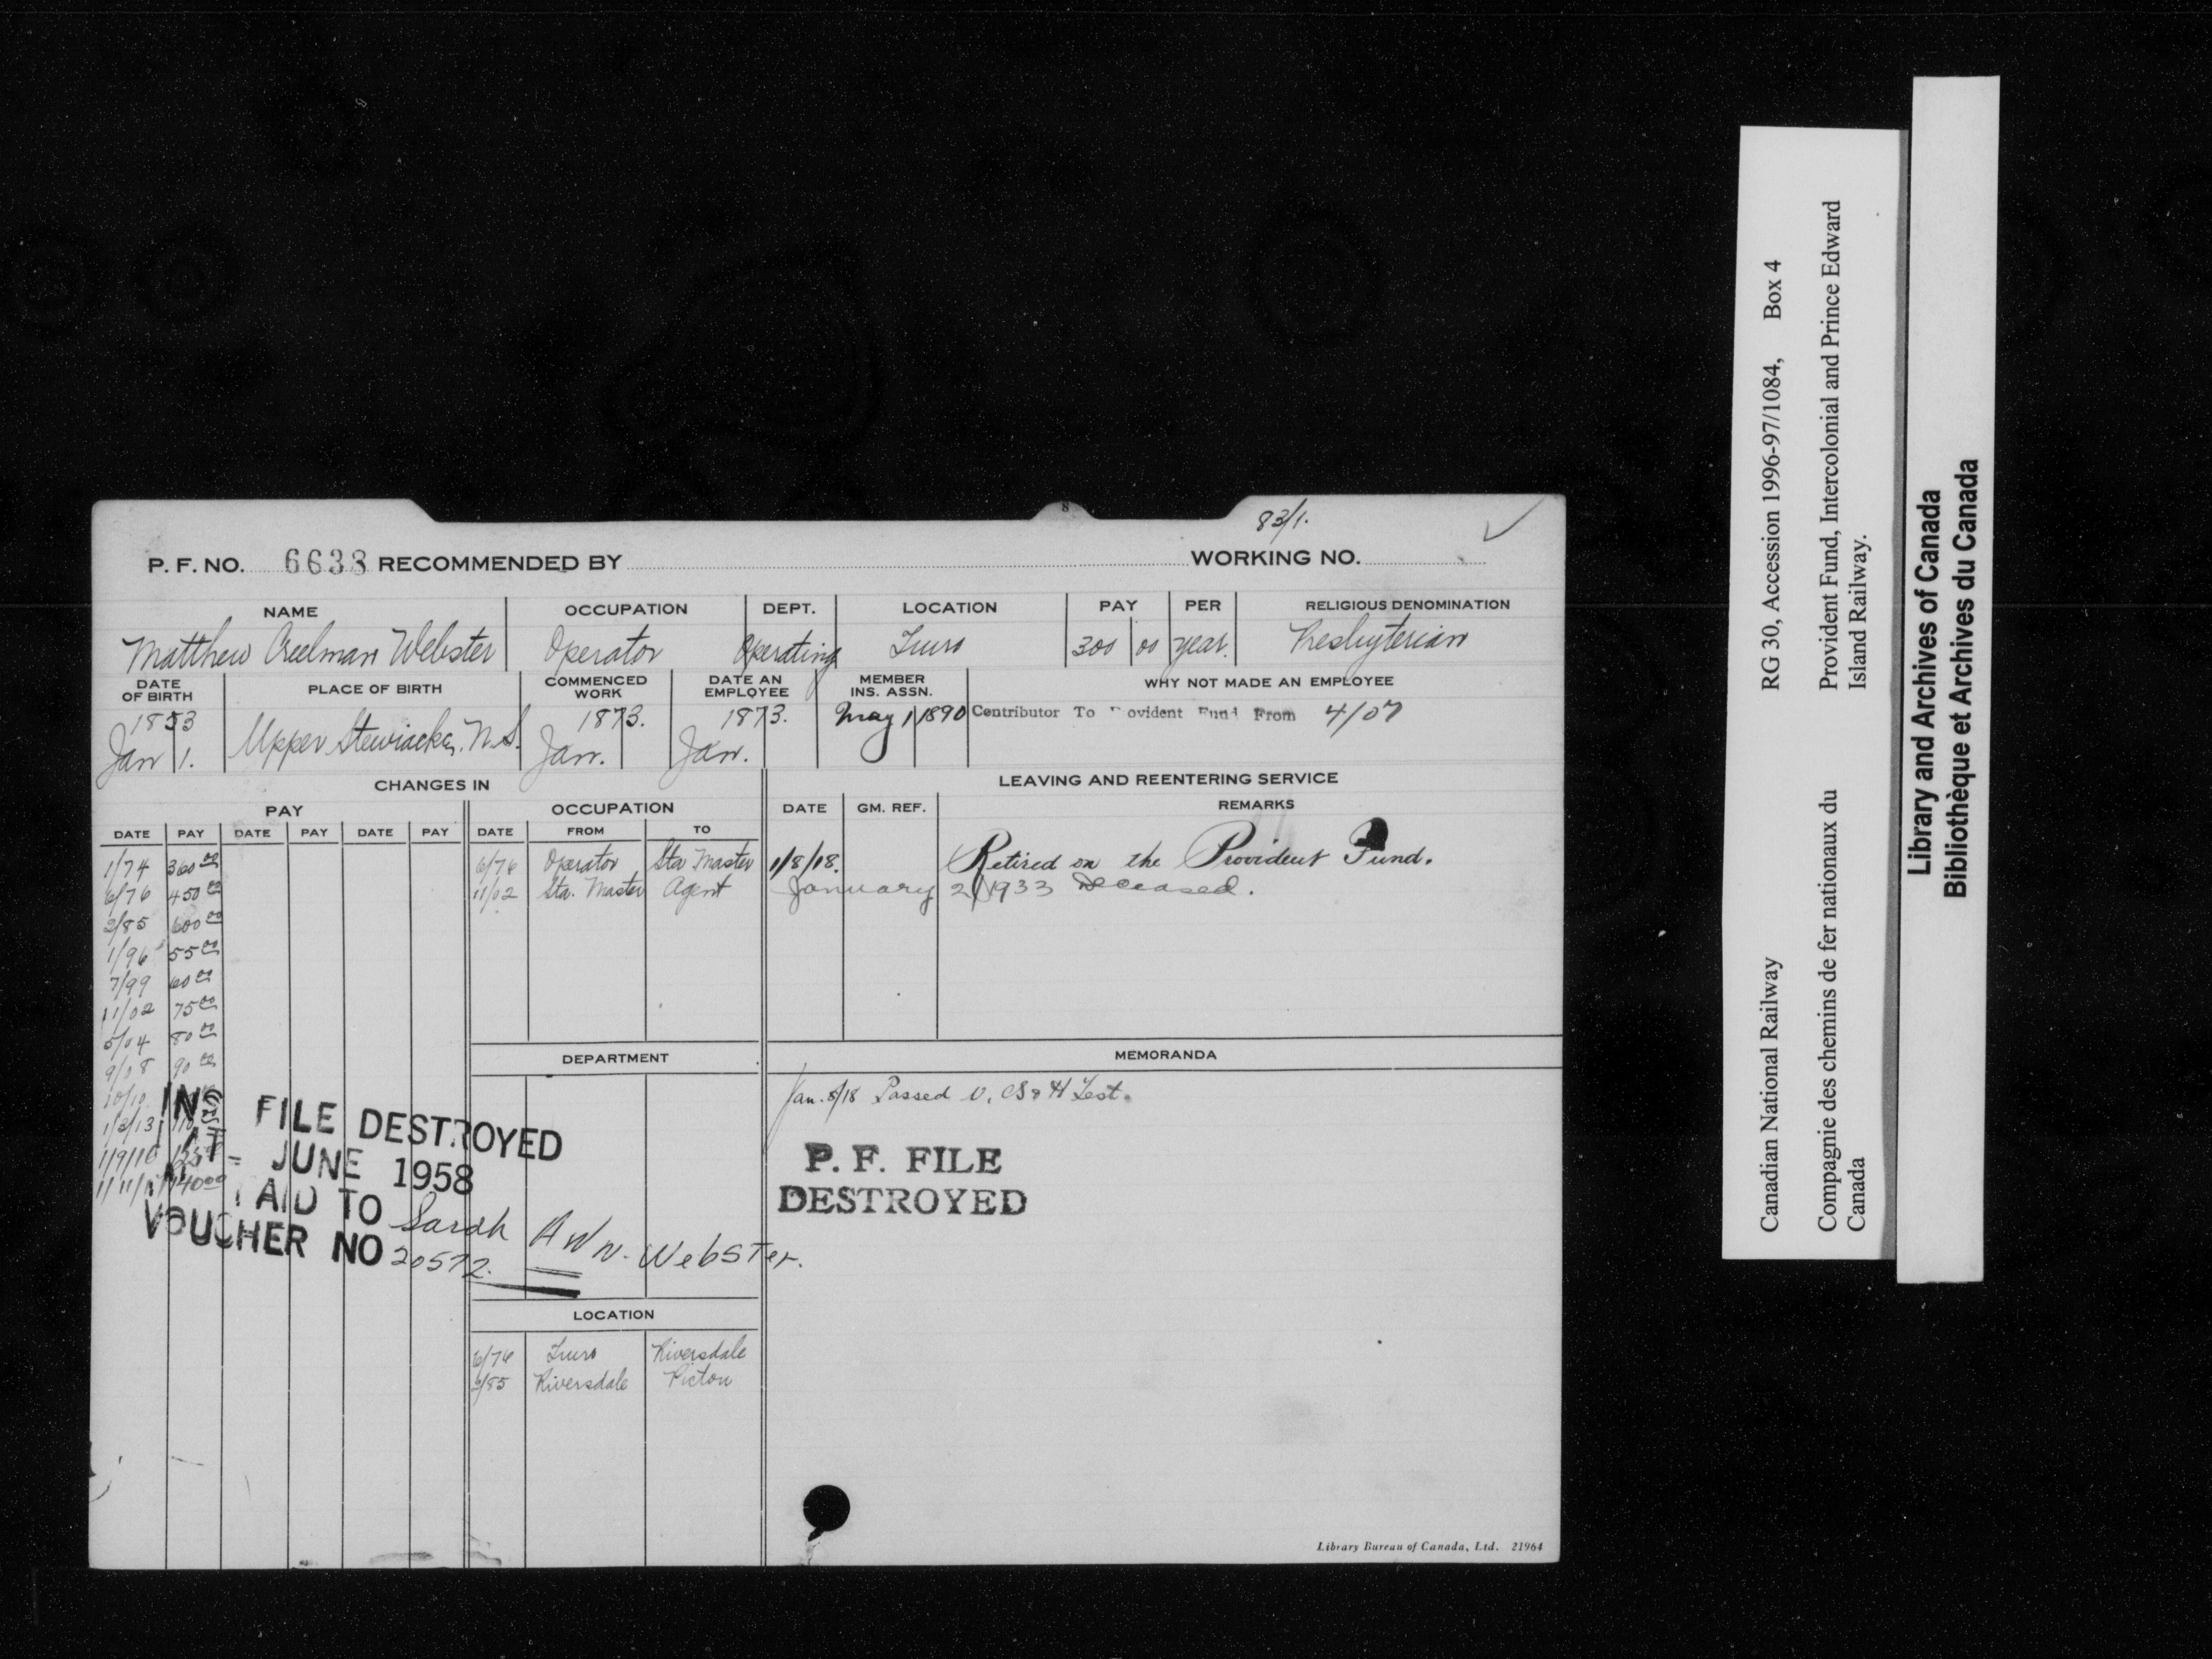 8
83/1.
P. F. NO. 6638 RECOMMENDED BY WORKING NO.
NAME OCCUPATION DEPT. LOCATION PAY PER RELIGIOUS DENOMINATION
Matthew Creelman Webster Operator Operating Truro 300 00 year. Presbyterian
DATE OF BIRTH PLACE OF BIRTH COMMENCED WORK DATE AN EMPLOYEE MEMBER INS. ASSN. WHY NOT MADE AN EMPLOYEE
1853 Jan 1. Upper Stewiacke, N.S. 1873. Jan. 1873. Jan. May 1 1890 Contributor To Provident Fund From 4/07
CHANGES IN
PAY
DATE PAY DATE PAY DATE PAY
1/74 360 00
6/76 450 00
2/85 600 00
1/96 55 00
7/99 60 00
11/02 75 00
5/04 80 00
9/08 90 00
10/10
1/2/13 110
1/9/16
1/11/ 140 00
OCCUPATION
DATE FROM TO
6/76 Operator Sta Master
11/02 Sta. Master Agent
DEPARTMENT
INS FILE DESTROYED
JUNE 1958
PAID TO Sarah Ann Webster.
VOUCHER NO 20572.
LOCATION
6/76 Truro Riversdale
2/85 Riversdale Pictou
LEAVING AND REENTERING SERVICE
DATE GM. REF. REMARKS
1/8/18. Retired on the Provident Fund.
January 2/1933 Deceased.
MEMORANDA
Jan. 8/18 Passed V, CS & H Test.
P. F. FILE
DESTROYED
Library Bureau of Canada, Ltd. 21964
Canadian National Railway RG 30, Accession 1996-97/1084, Box 4
Compagnie des chemins de fer nationaux du
Canada
Provident Fund, Intercolonial and Prince Edward
Island Railway.
Library and Archives of Canada
Bibliothèque et Archives du Canada